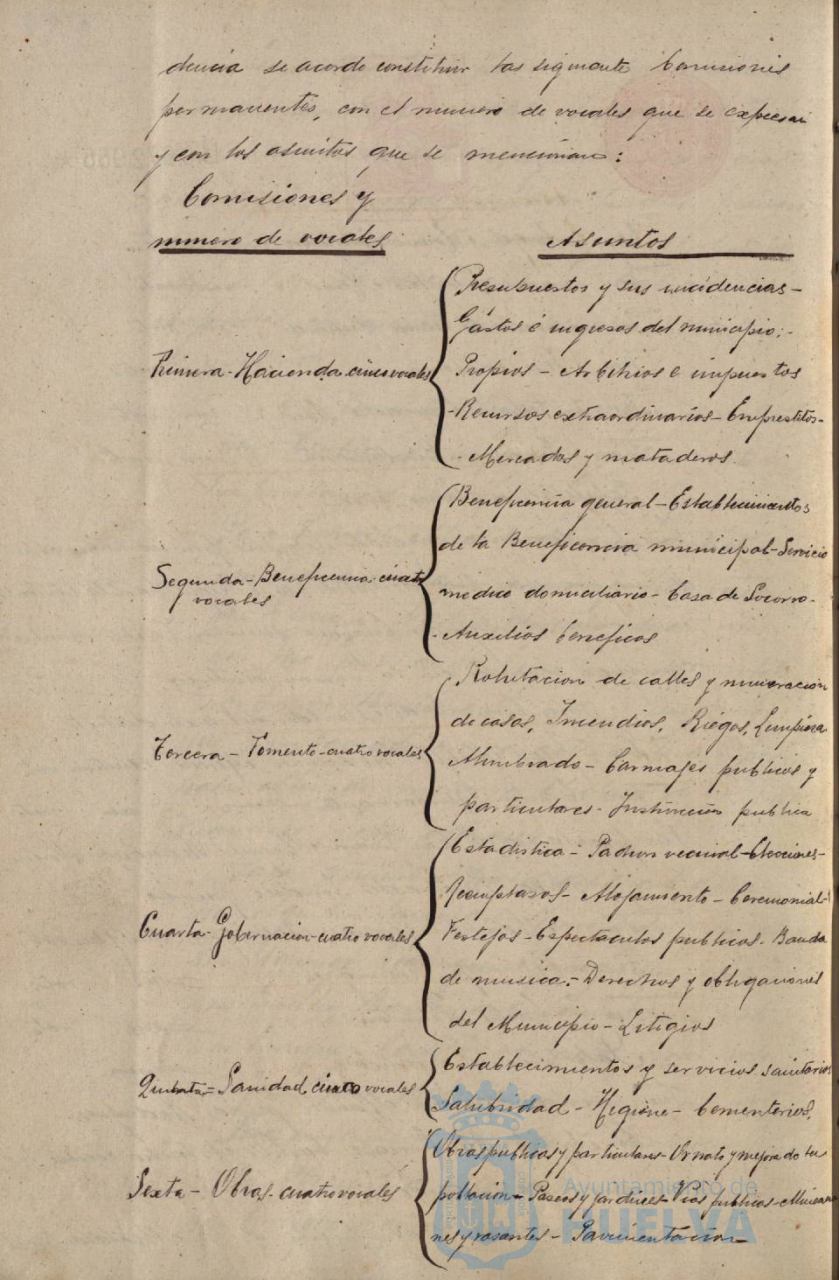 dencia se acordo constituir las siguiente Comisiones
permanentes, con el numero de vocales que se expresan
y con los asuntos que se mencionan:
Comisiones y
numero de vocales
Asuntos
Primera - Hacienda cinco vocales
Presupuestos y sus incidencias -
Gastos é ingresos del municipio; -
Propios - Arbitrios é impuestos
- Recursos extraordinarios - Emprestitos -
- Mercados y mataderos.
Segunda - Beneficencia - cuatro
vocales
Beneficencia general - Establecimientos
de la Beneficencia municipal - Servicio
medico domiciliario - Casa de Socorro -
- Auxilios beneficos
Tercera - Fomento - cuatro vocales
Rotulacion de calles y numeracion
de casas, Incendios, Riegos, Limpieza
Alumbrado - Carruajes publicos y
particulares - Instruccion publica
Cuarta - Gobernacion - cuatro vocales
Estadistica - Padron vecinal - Elecciones -
Reemplazos - Alojamiento - Ceremonial -
Festejos - Espectaculos publicos - Banda
de musica. - Derechos y obligaciones
del Municipio - Litigios
Quinta - Sanidad cinco vocales
Establecimientos y servicios sanitarios
Salubridad - Higiene - Cementerios,
Sexta - Obras - cuatro vocales
Obras publicas y particulares - Ornato y mejora de la
poblacion - Paseos y jardines - Vias publicas -
nes y rasantes - Pavimentacion -
Ayuntamiento de
HUELVA